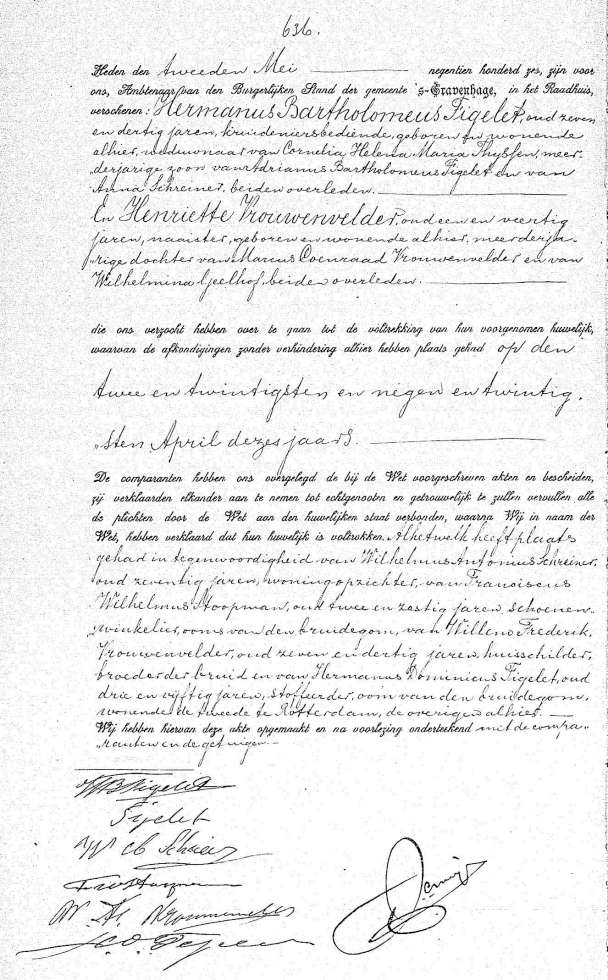 636.
Heden den tweeden Mei negentien honderd zes, zijn voor
ons, Ambtenaar van den Burgerlijken Stand der gemeente 's-Gravenhage, in het Raadhuis,
verschenen: Hermanus Bartholomeus Figelet, oud zeven
en dertig jaren, kruideniersbediende, geboren en wonende
alhier, weduwnaar van Cornelia Helena Maria Thyssen, meer-
derjarige zoon van Adrianus Bartholomeus Figelet en van
Anna Schreiner, beiden overleden.
En Henriette Vrouwenvelder, oud een en veertig
jaren, naaister, geboren en wonende alhier, meerderja-
rige dochter van Marius Coenraad Vrouwenvelder en van
Wilhelmina Geelhof, beiden overleden.
die ons verzocht hebben over te gaan tot de voltrekking van hun voorgenomen huwelijk,
waarvan de afkondigingen zonder verhindering alhier hebben plaats gehad op den
twee en twintigsten en negen en twintig-
sten April dezes jaars.
De comparanten hebben ons overgelegd de bij de Wet voorgeschreven akten en bescheiden,
zij verklaarden elkander aan te nemen tot echtgenooten en getrouwelijk te zullen vervullen alle
de plichten door de Wet aan den huwelijken staat verbonden, waarna Wij in naam der
Wet, hebben verklaard dat hun huwelijk is voltrokken. Alhetwelk heeft plaats
gehad in tegenwoordigheid van Wilhelmus Antonius Schreiner,
oud zeventig jaren, woningopzichter, van Franciscus
Wilhelmus Stoopman, oud twee en zestig jaren, schoenen-
winkelier, ooms van den bruidegom, van Willem Frederik
Vrouwenvelder, oud zeven en dertig jaren, huisschilder,
broeder der bruid en van Hermanus Dominicus Figelet, oud
drie en vijftig jaren, stoffeerder, oom van den bruidegom,
wonende de tweede te Rotterdam, de overigen alhier.
Wij hebben hiervan deze akte opgemaakt en na voorlezing onderteekend met de compa-
ranten en de getuigen.
HB Figelet